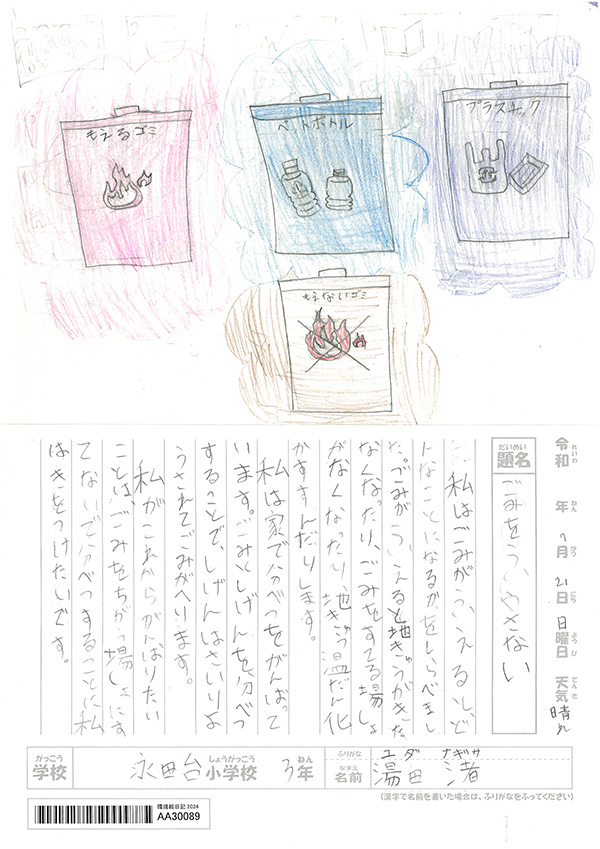 もえるゴミ
ペットボトル
プラスチック
もえないゴミ
令和 年 7月 21日 日曜日 天気 晴れ
れいわ ねん がつ にち ようび てんき
だいめい
題名 ごみをふやさない
私はごみがふえるとど
んなことになるかをしらべまし
た。ごみがふえると地きゅうがきた
なくなったり、ごみをすてる場しょ
がなくなったり、地きゅう温だん化
がすすんだりします。
私は家で分べつをがんばって
います。ごみとしげんを分べつ
することで、しげんはさいりよ
うされてごみがへります。
私がこれからがんばりたい
ことは、ごみをちがう場しょにす
てないで分べつすることに私
はきをつけたいです。
がっこう しょうがっこう ねん ふりがな ユダ ナギサ
学校 永田台 小学校 3年 なまえ 名前 湯田 渚
(漢字で名前を書いた場合は、ふりがなをふってください)
環境絵日記 2024
AA30089